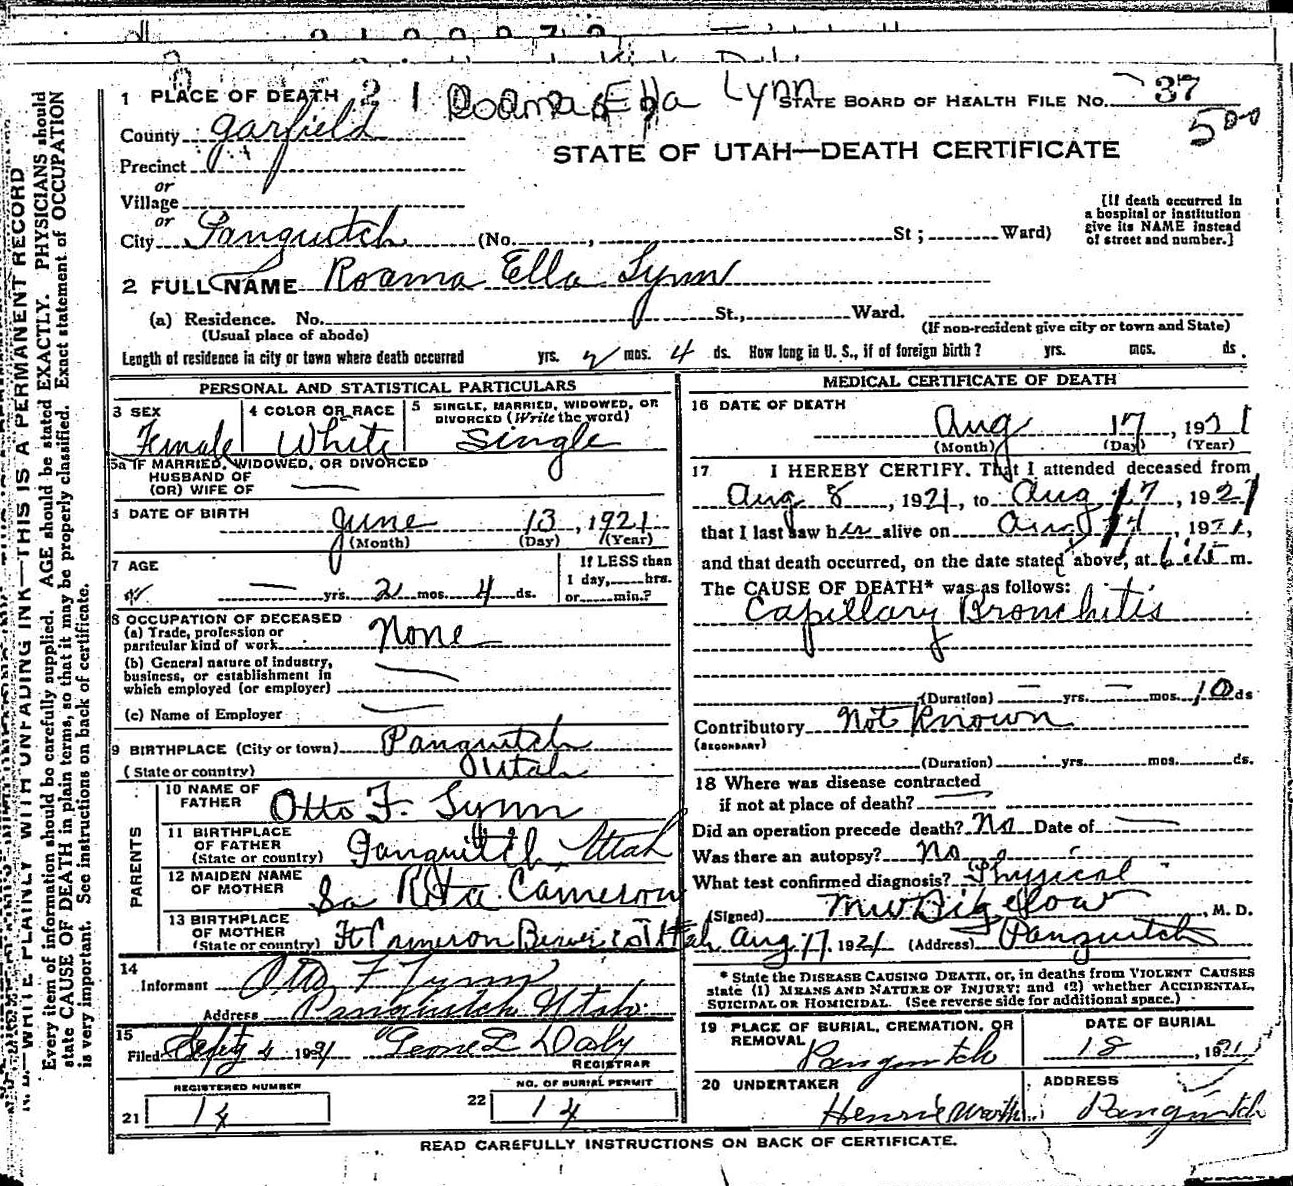 Roama Ella Lynn
1 PLACE OF DEATH
STATE BOARD OF HEALTH FILE NO. 37
500
County Garfield
STATE OF UTAH—DEATH CERTIFICATE
Precinct
or
Village
or
City Panguitch (No. , St ; Ward)
[If death occurred in
a hospital or institution
give its NAME instead
of street and number.]
2 FULL NAME Roama Ella Lynn
(a) Residence. No. St., Ward.
(Usual place of abode) (If non-resident give city or town and State)
Length of residence in city or town where death occurred yrs. 2 mos. 4 ds. How long in U. S., if of foreign birth? yrs. mos. ds.
PERSONAL AND STATISTICAL PARTICULARS
3 SEX
Female
4 COLOR OR RACE
White
5 SINGLE, MARRIED, WIDOWED, OR
DIVORCED (Write the word)
Single
5a IF MARRIED, WIDOWED, OR DIVORCED
HUSBAND OF
(OR) WIFE OF —
6 DATE OF BIRTH
June 13, 1921
(Month) (Day) (Year)
7 AGE
— yrs. 2 mos. 4 ds.
If LESS than
1 day, hrs.
or min.?
8 OCCUPATION OF DECEASED
(a) Trade, profession or
particular kind of work None
(b) General nature of industry,
business, or establishment in
which employed (or employer) —
(c) Name of Employer —
9 BIRTHPLACE (City or town) Panguitch
(State or country) Utah
PARENTS
10 NAME OF
FATHER Otto F. Lynn
11 BIRTHPLACE
OF FATHER
(State or country) Panguitch Utah
12 MAIDEN NAME
OF MOTHER Sa Rita Cameron
13 BIRTHPLACE
OF MOTHER
(State or country) Ft Cameron Beaver Co Utah
14
Informant Otto F Lynn
Address Panguitch Utah
15
Filed Sept 4 1921 Daly
REGISTRAR
REGISTERED NUMBER
21 14
NO. OF BURIAL PERMIT
22 14
MEDICAL CERTIFICATE OF DEATH
16 DATE OF DEATH
Aug 17, 1921
(Month) (Day) (Year)
17 I HEREBY CERTIFY. That I attended deceased from
Aug 8, 1921, to Aug 17, 1921
that I last saw her alive on Aug 17, 1921,
and that death occurred, on the date stated above, at m.
The CAUSE OF DEATH* was as follows:
Capillary Bronchitis
(Duration) — yrs. — mos. 10 ds
Contributory Not Known
(SECONDARY)
(Duration) yrs. mos. ds.
18 Where was disease contracted
if not at place of death? —
Did an operation precede death? No Date of —
Was there an autopsy? No
What test confirmed diagnosis? Physical
(Signed) M W Bigelow, M. D.
Aug 17, 1921 (Address) Panguitch
* State the DISEASE CAUSING DEATH, or, in deaths from VIOLENT CAUSES
state (1) MEANS AND NATURE OF INJURY; and (2) whether ACCIDENTAL,
SUICIDAL OR HOMICIDAL. (See reverse side for additional space.)
19 PLACE OF BURIAL, CREMATION, OR
REMOVAL
Panguitch
DATE OF BURIAL
18, 1921
20 UNDERTAKER
Henrie Worth
ADDRESS
Panguitch
READ CAREFULLY INSTRUCTIONS ON BACK OF CERTIFICATE.
N. B.—WRITE PLAINLY WITH UNFADING INK—THIS IS A PERMANENT RECORD
Every item of information should be carefully supplied. AGE should be stated EXACTLY. PHYSICIANS should
state CAUSE OF DEATH in plain terms, so that it may be properly classified. Exact statement of OCCUPATION
is very important. See instructions on back of certificate.